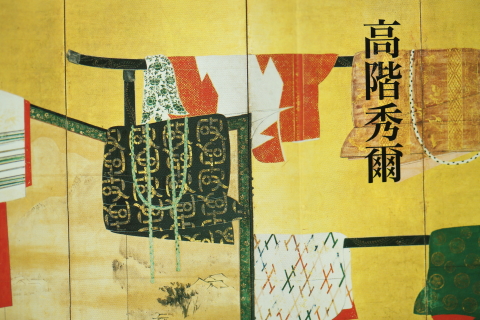 高階秀爾